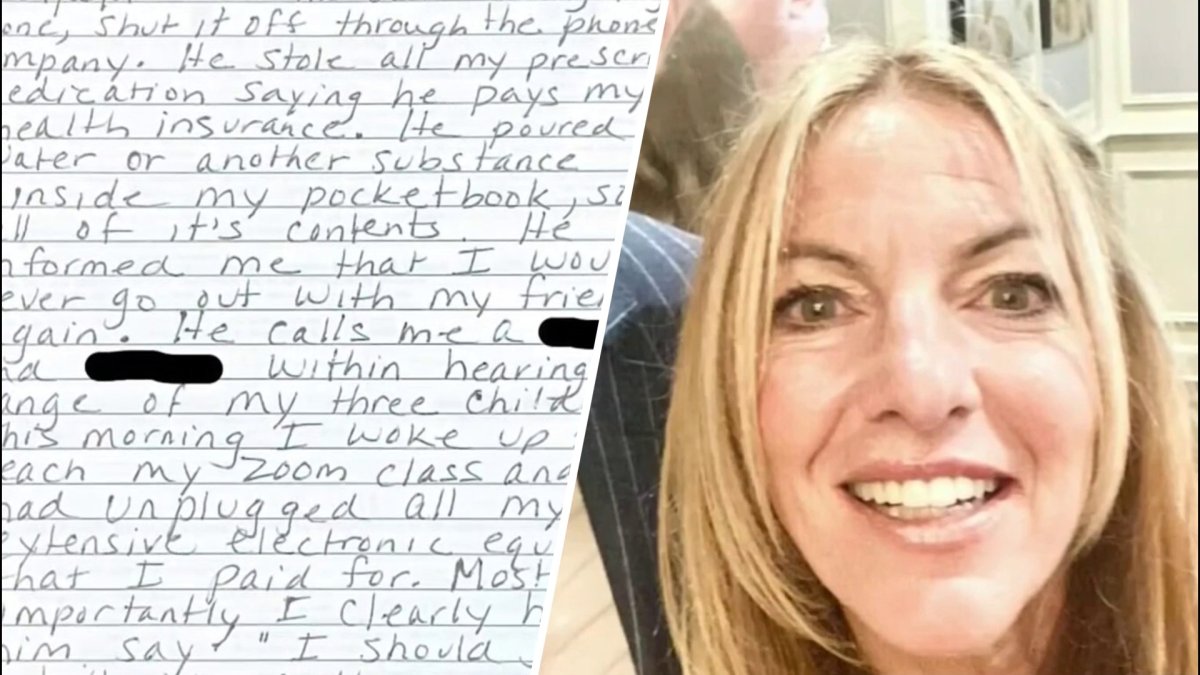 one, shut it off through the phone
mpany. He stole all my prescri
edication saying he pays my
health insurance. He poured
water or another substance
inside my pocketbook, so
ll of it's contents. He
nformed me that I wou
ever go out with my frie
gain. He calls me a
nd within hearing
ange of my three child
his morning I woke up
each my zoom class and
had unplugged all my
extensive electronic equ
that I paid for. Most
importantly I clearly h
him say "I should